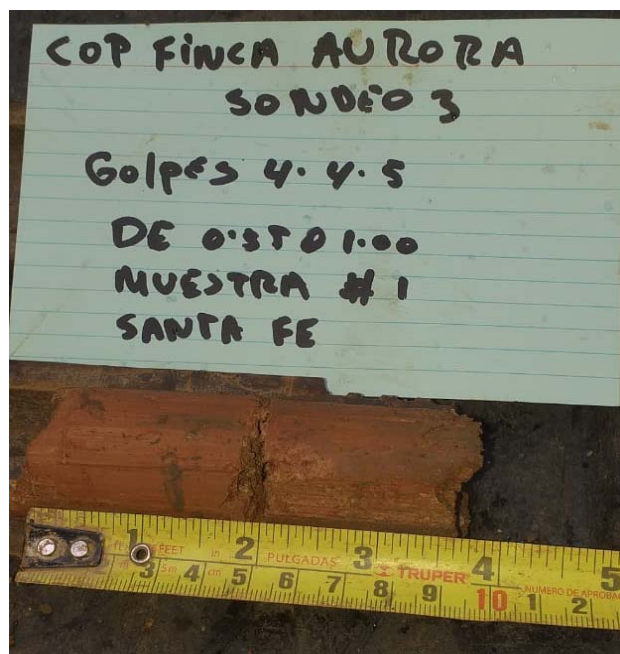 COP FINCA AURORA
SONDEO 3
Golpes 4.4.5
DE 0.5T0 1.00
MUESTRA # 1
SANTA FE
1 FEET in 2 PULGADAS 3 TRUPER 4 5
m 3 4 cm 5 6 7 8 9 10 NUMERO DE APROBA 1 2